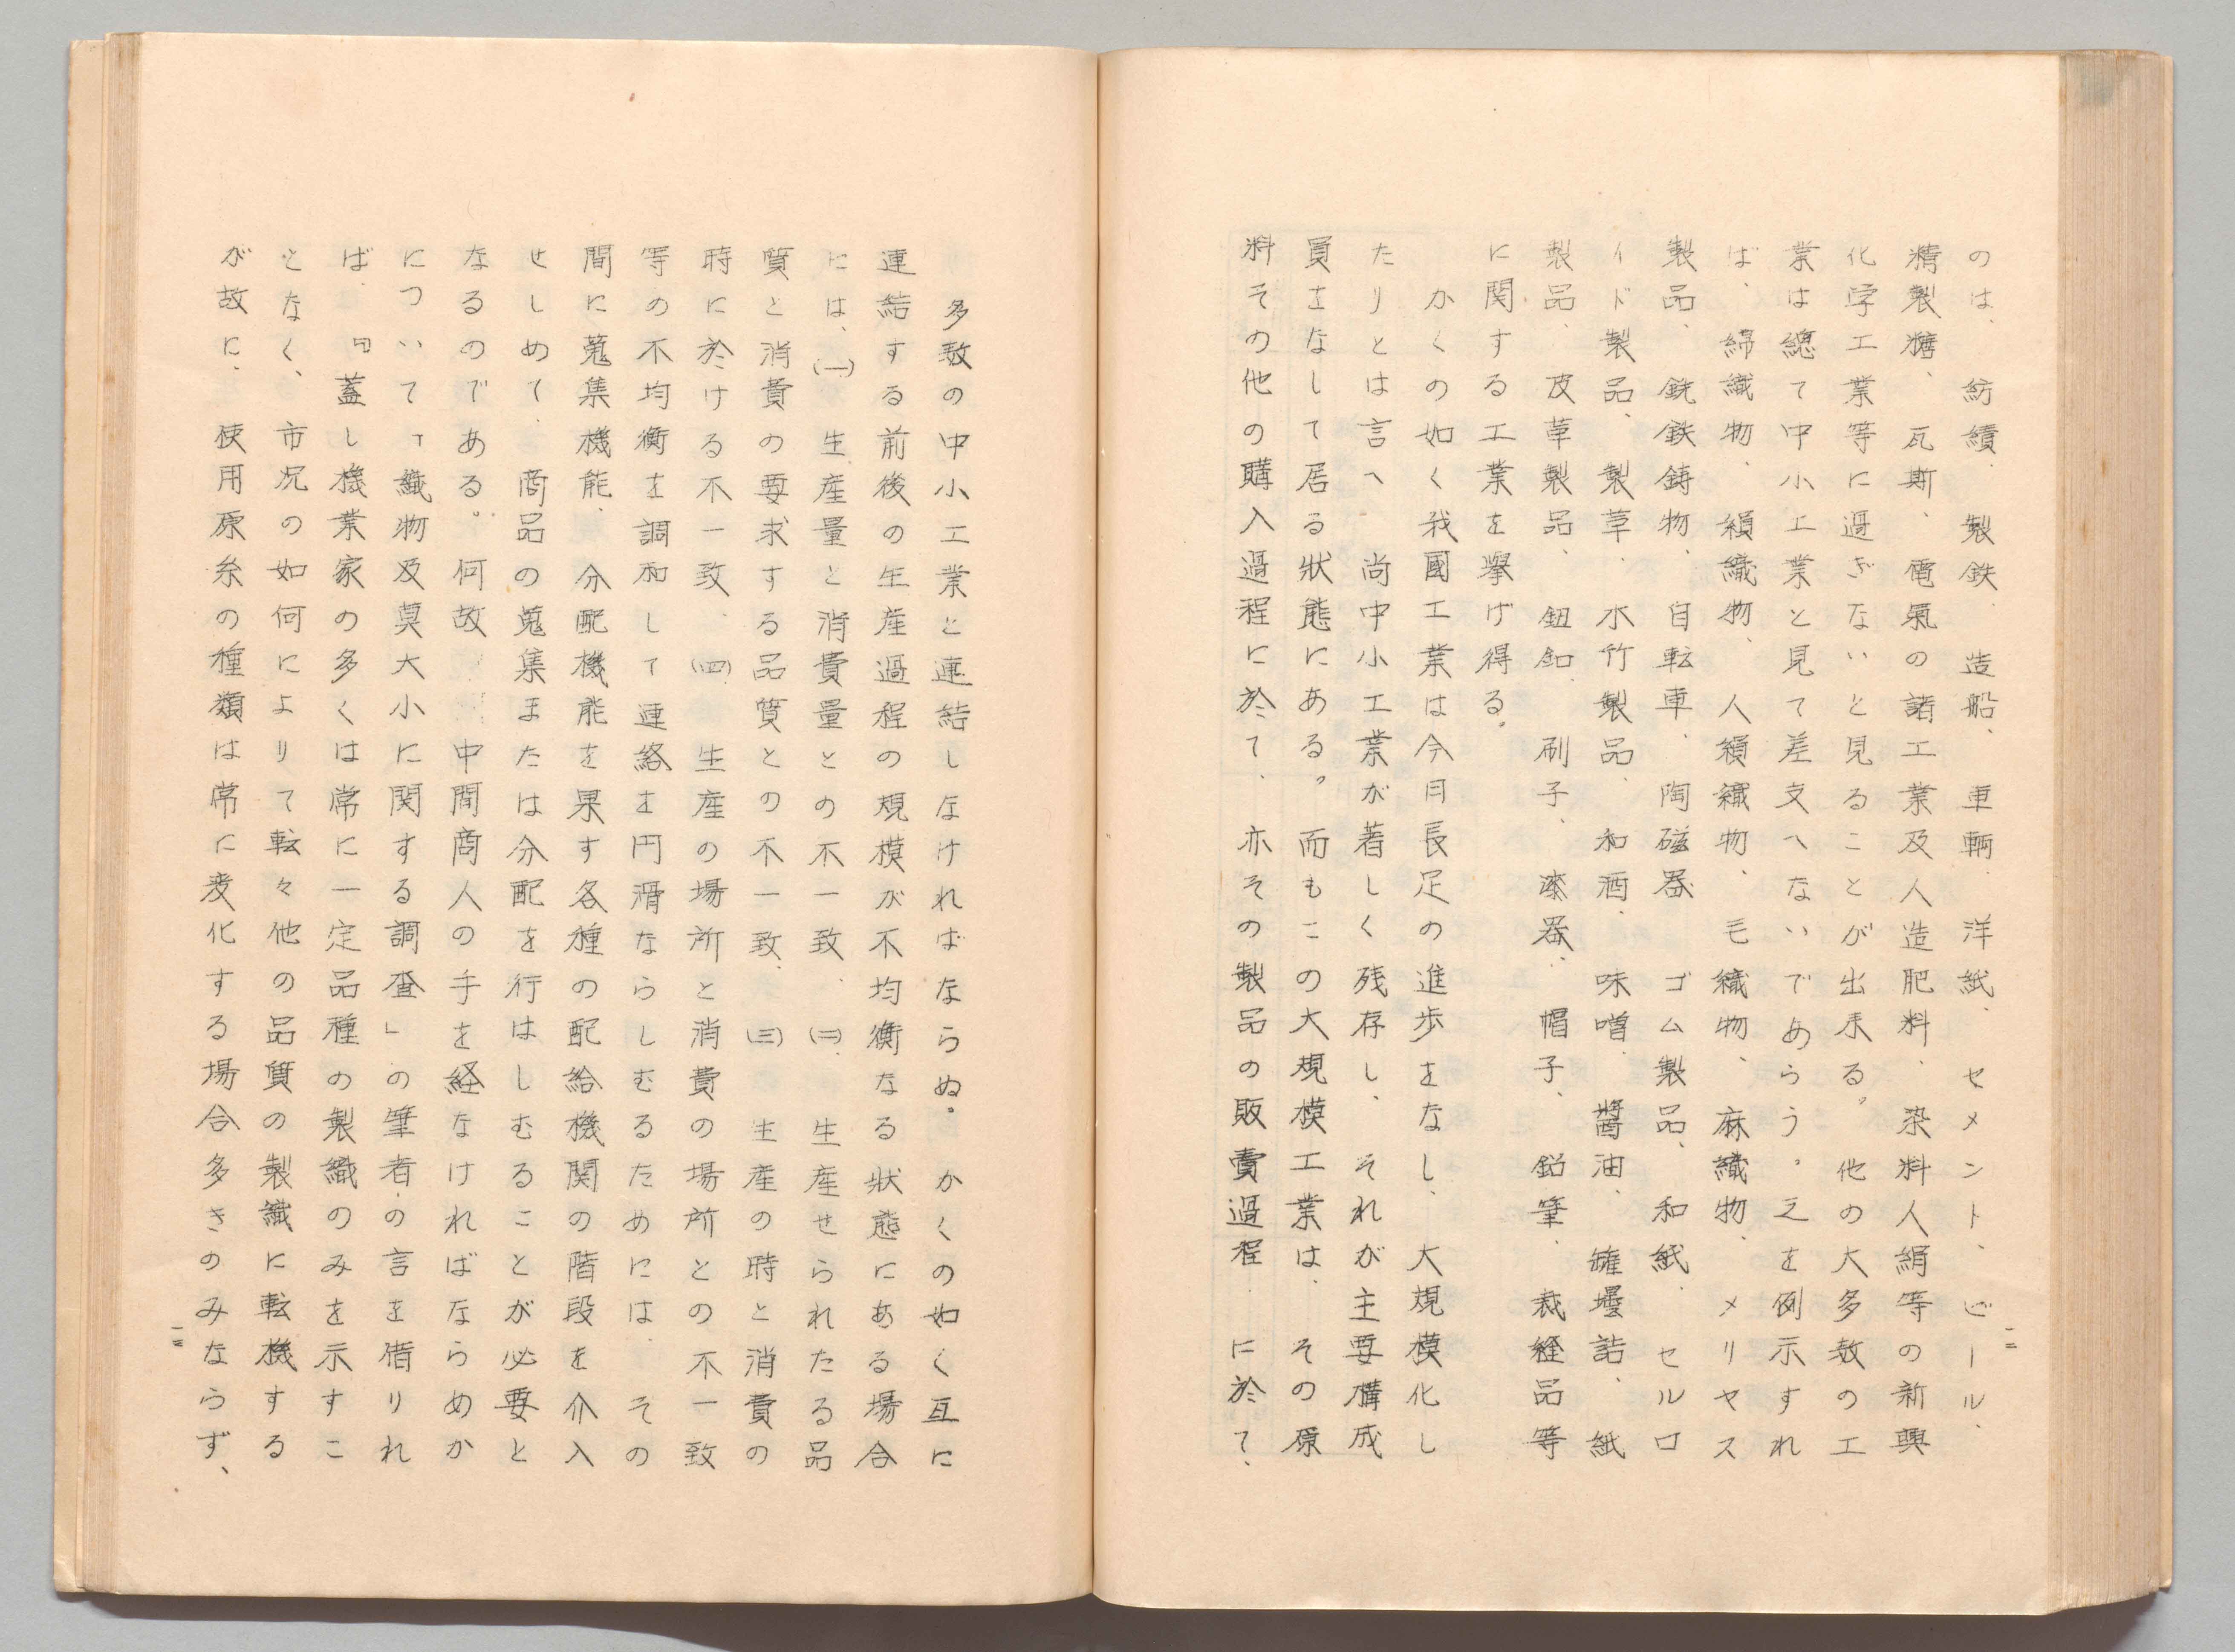 のは、紡績、製鉄、造船、車輌、洋紙、セメント、ビール、
精製糖、瓦斯、電氣の諸工業及人造肥料、染料人絹等の新興
化学工業等に過ぎないと見ることが出来る。他の大多数の工
業は總て中小工業と見て差支へないであらう。之を例示すれ
ば、綿織物、絹織物、人絹織物、毛織物、麻織物、メリヤス
製品、銑鉄鋳物、自転車、陶磁器、ゴム製品、和紙、セルロ
イド製品、製革、木竹製品、和酒、味噌、醤油、罐壜詰、紙
製品、皮革製品、鈕釦、刷子、漆器、帽子、鉛筆、裁縫品等
に関する工業を擧げ得る。
かくの如く我國工業は今日長足の進歩をなし、大規模化し
たりとは言へ、尚中小工業が着しく残存し、それが主要構成
員をなして居る狀態にある。而もこの大規模工業は、その原
料その他の購入過程に於て、亦その製品の販賣過程に於て、
一二
多数の中小工業と連結しなければならぬ。かくの如く互に
連結する前後の生産過程の規模が不均衡なる狀態にある場合
には、(一)生産量と消費量との不一致、(二)生産せられたる品
質と消費の要求する品質との不一致、(三)生産の時と消費の
時に於ける不一致、(四)生産の場所と消費の場所との不一致
等の不均衡を調和して連絡を円滑ならしむるためには、その
間に蒐集機能、分配機能を果す各種の配給機関の階段を介入
せしめて、商品の蒐集または分配を行はしむることが必要と
なるのである。何故 中間商人の手を経なければならめか
について「織物及莫大小に関する調査」の筆者の言を借りれ
ば、『蓋し機業家の多くは常に一定品種の製織のみを示すこ
となく、市況の如何によりて転々他の品質の製織に転機する
が故に、使用原糸の種類は常に変化する場合多きのみならず、
一三